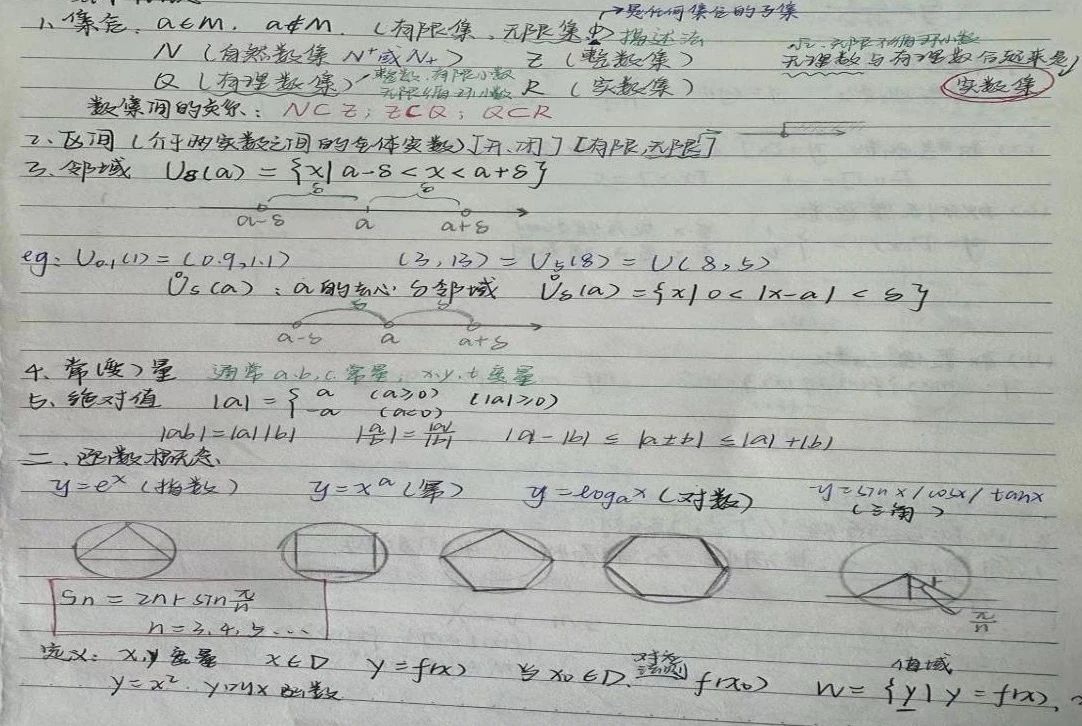 是任何集合的子集
1、集合. a∈M. a∉M. (有限集、无限集、Φ) 描述法
N (自然数集 N⁺或N₊) Z (整数集) 无限不循环小数
Q (有理数集) 整数、有限小数 无限循环小数 R (实数集) 无理数与有理数合起来是
实数集
数集间的关系: N⊂Z; Z⊂Q; Q⊂R
2、区间 (介于两实数之间的全体实数) [开、闭] [有限,无限]
3、邻域 Uδ(a) = {x| a-δ < x < a+δ}
δ δ
a-δ a a+δ
eg: U₀.₁(1) = (0.9,1.1) (3,13) = U₅(8) = U(8,5)
Ůδ(a) : a的去心δ邻域 Ůδ(a) = {x| 0 < |x-a| < δ}
δ δ
a-δ a a+δ
4、常(变)量 通常 a.b.c.常量, x.y.t变量
5、绝对值 |a| = { a (a≥0) (|a|≥0)
-a (a<0)
|ab|=|a||b| |a/b|=|a|/|b| |a|-|b| ≤ |a±b| ≤ |a|+|b|
二、函数概念、
y=eˣ (指数) y=xᵃ (幂) y=logₐx (对数) y=sinx/cosx/tanx
(三角)
Sn = 2nr sin π/n
n=3,4,5...
r
π/n
定义: x,y变量 x∈D y=f(x) 当x₀∈D. 对应法则 f(x₀) 值域
y=x². y为x函数 W= {y| y=f(x),